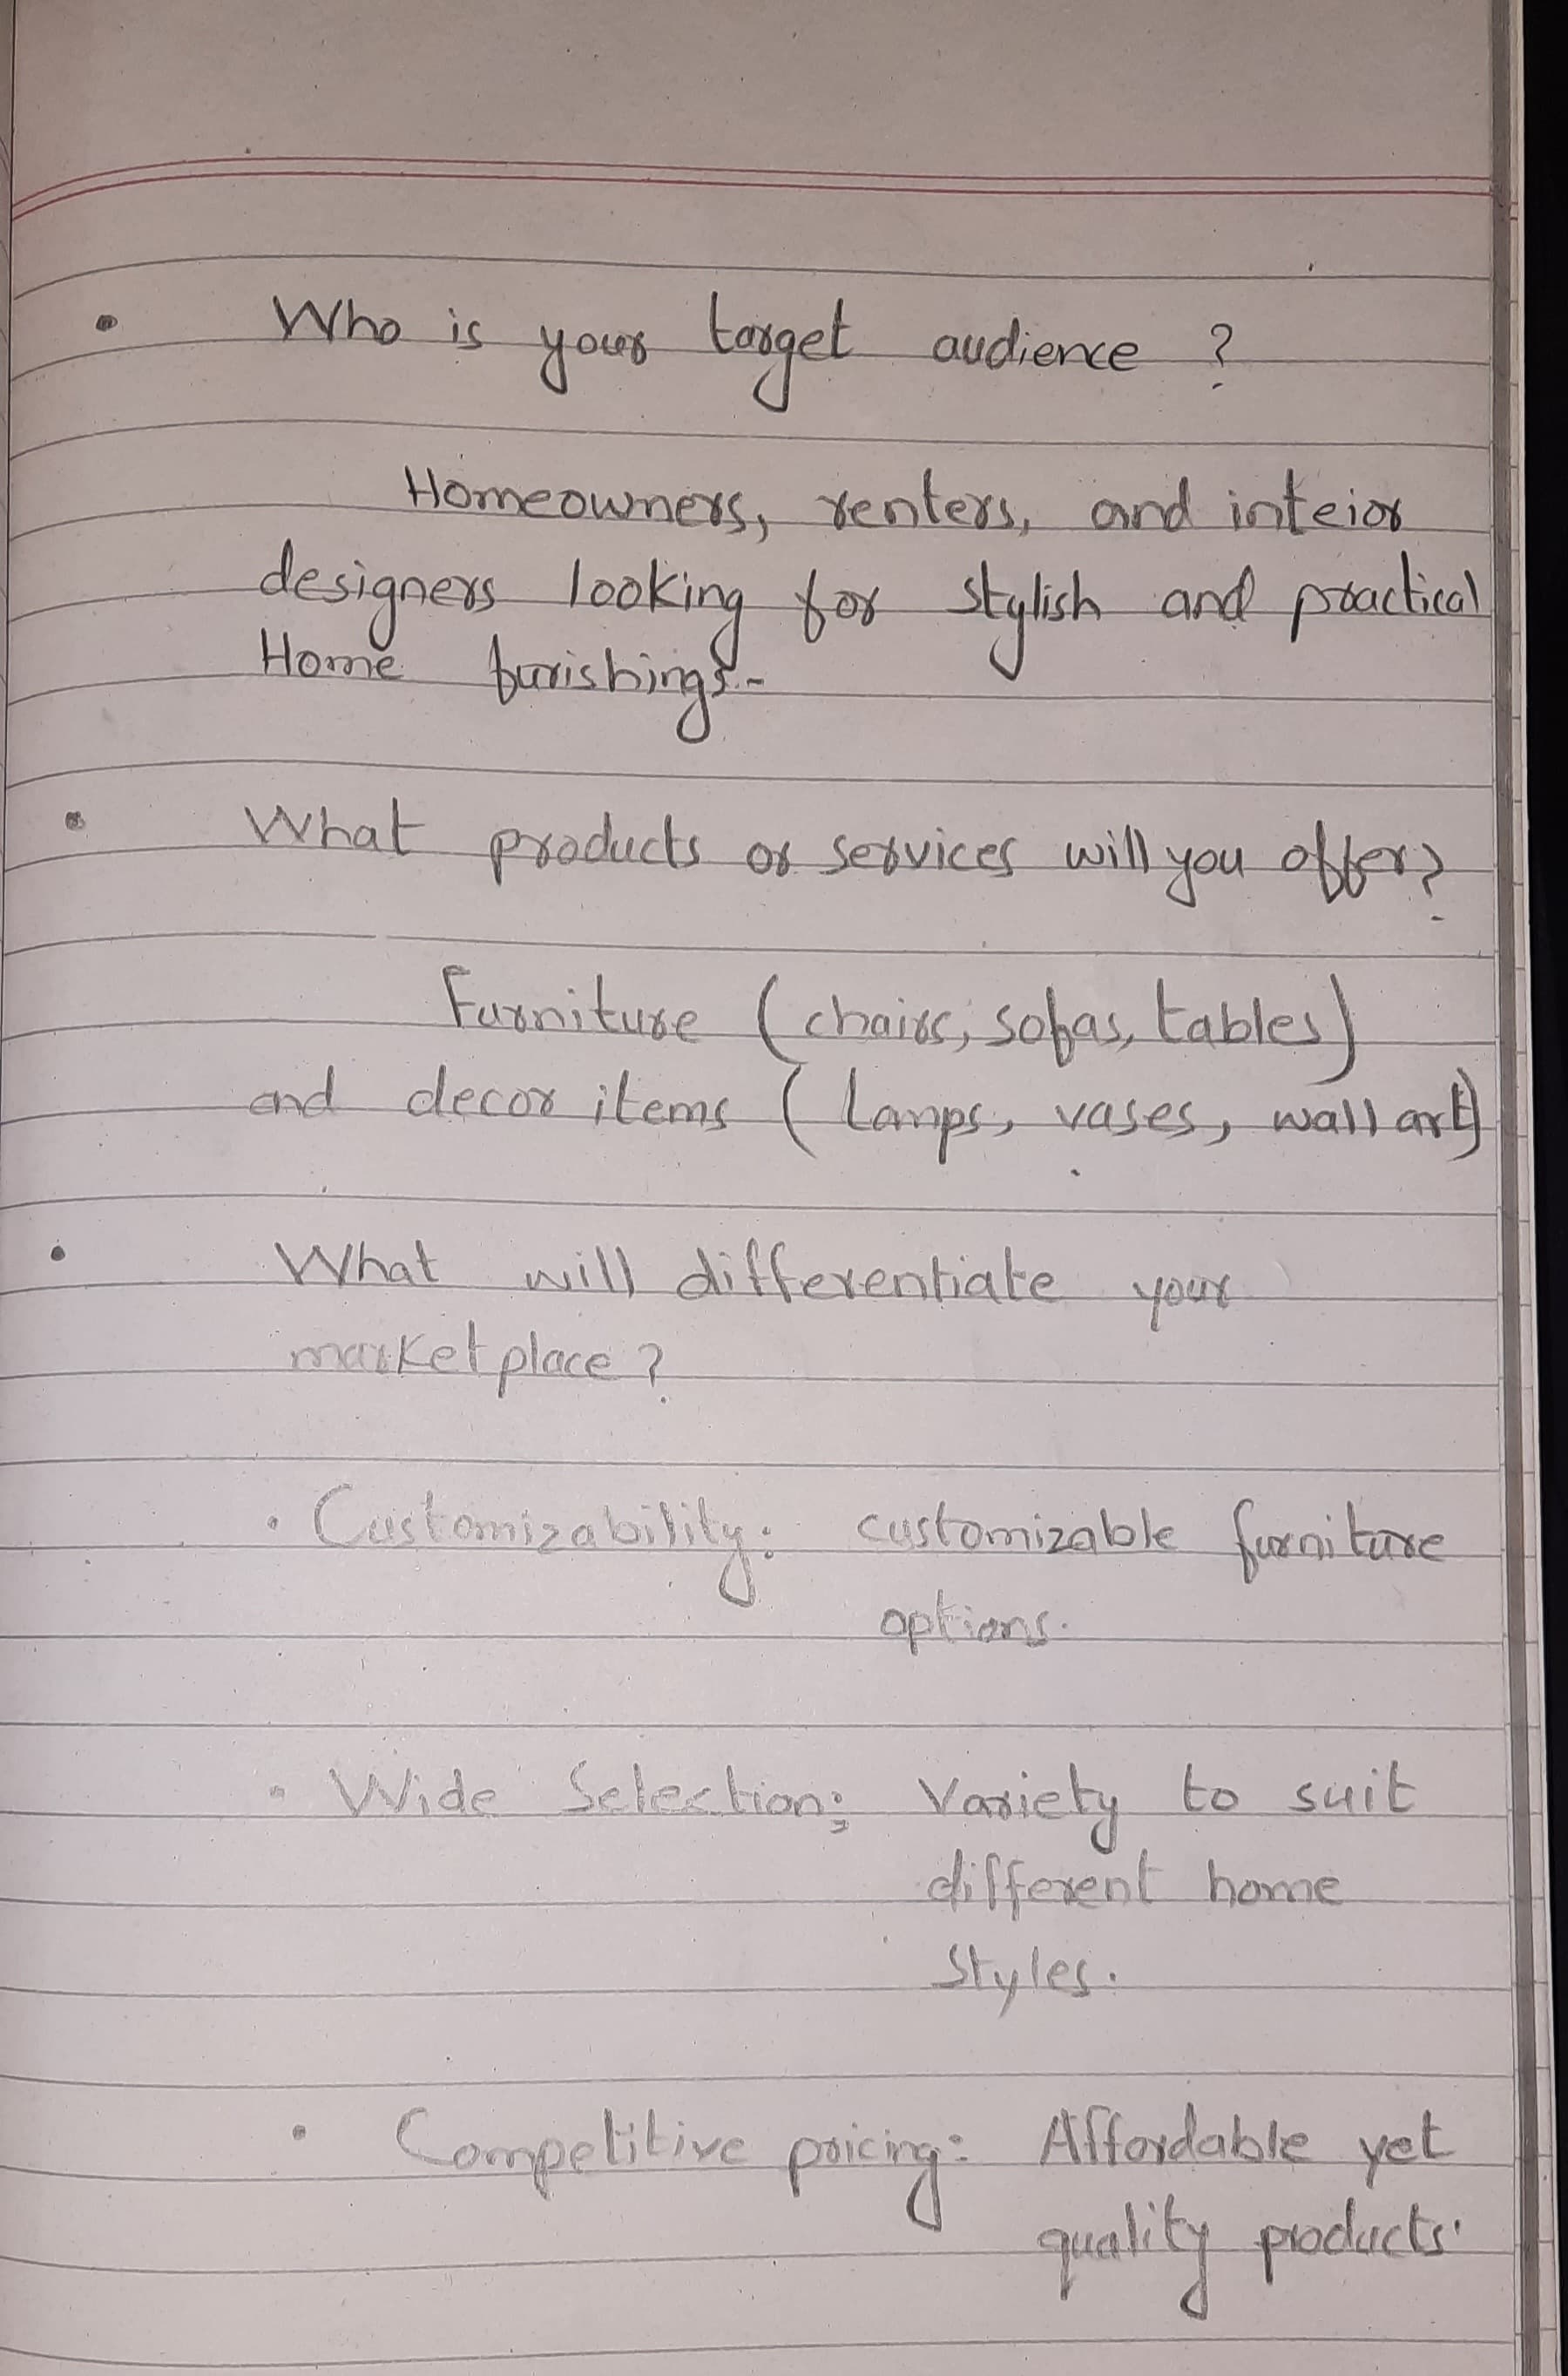 • Who is your target audience ?
Homeowners, renters, and inteior
designers looking for stylish and practical
Home furishings.-
• What products or services will you offer?
Furniture (chairs, sofas, tables)
and decor items ( Lamps, vases, wall art)
• What will differentiate your
marketplace ?
• Customizability: customizable furniture
options.
• Wide Selection: Variety to suit
different home
Styles.
• Competitive pricing: Affordable yet
quality products.